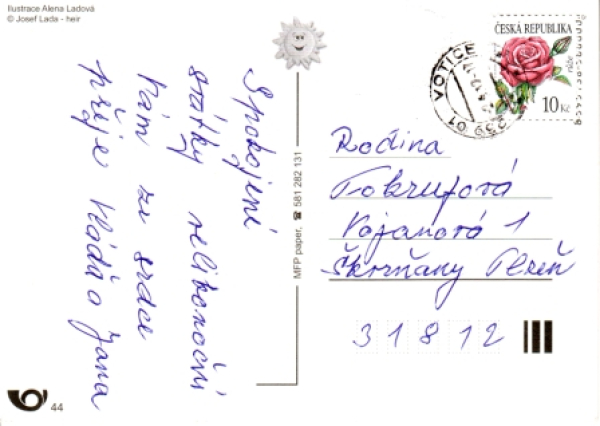 Ilustrace Alena Ladová
© Josef Lada - heir
Spokojené
svátky velikonoční
Vám ze srdce
přeje Vláďa a Jana
MFP paper, ☎ 581 282 131
44
ČESKÁ REPUBLIKA
růže
10 Kč
VOTICE
259 01
Rodina
Vojanová 1
Škvrňany Plzeň
31812